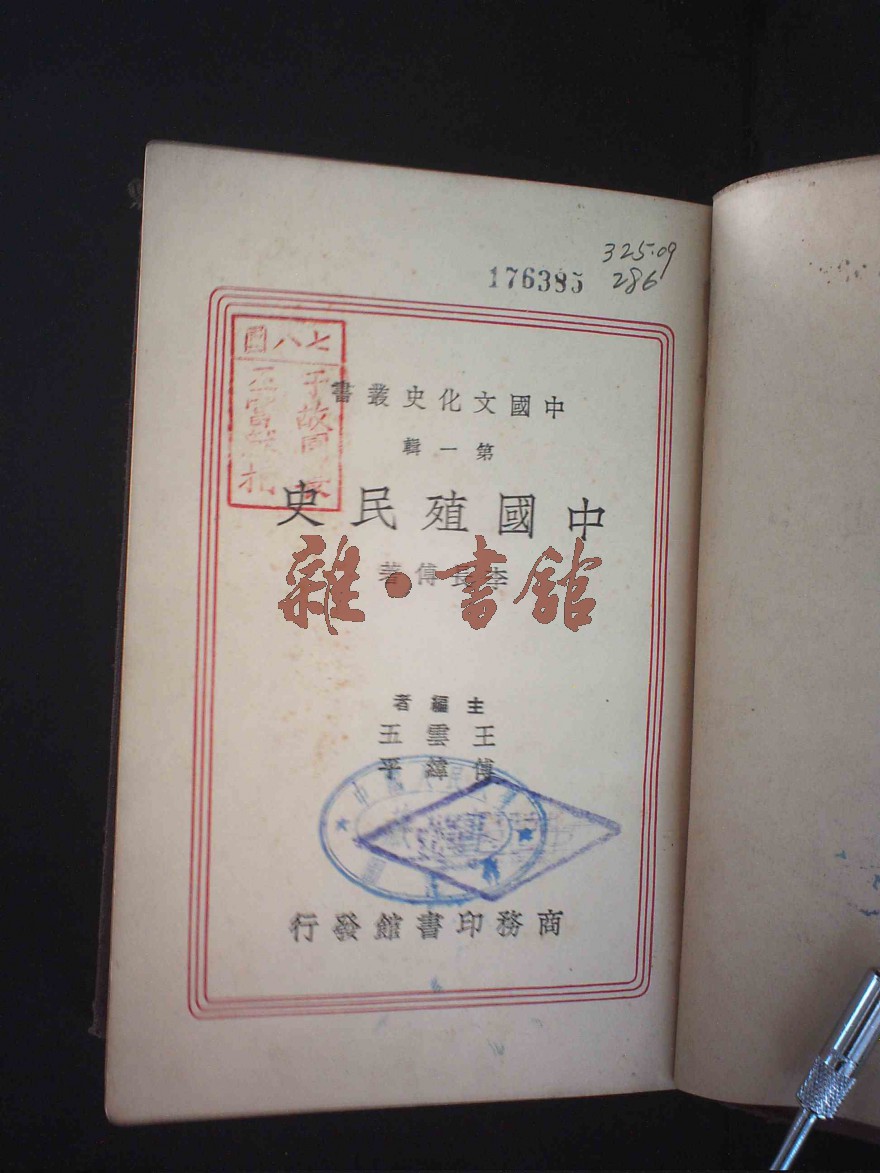 325.09
176385 286
中國文化史叢書
第一輯
中國殖民史
李長傅著
雜·書館
主編者
王雲五
傅緯平
商務印書館發行